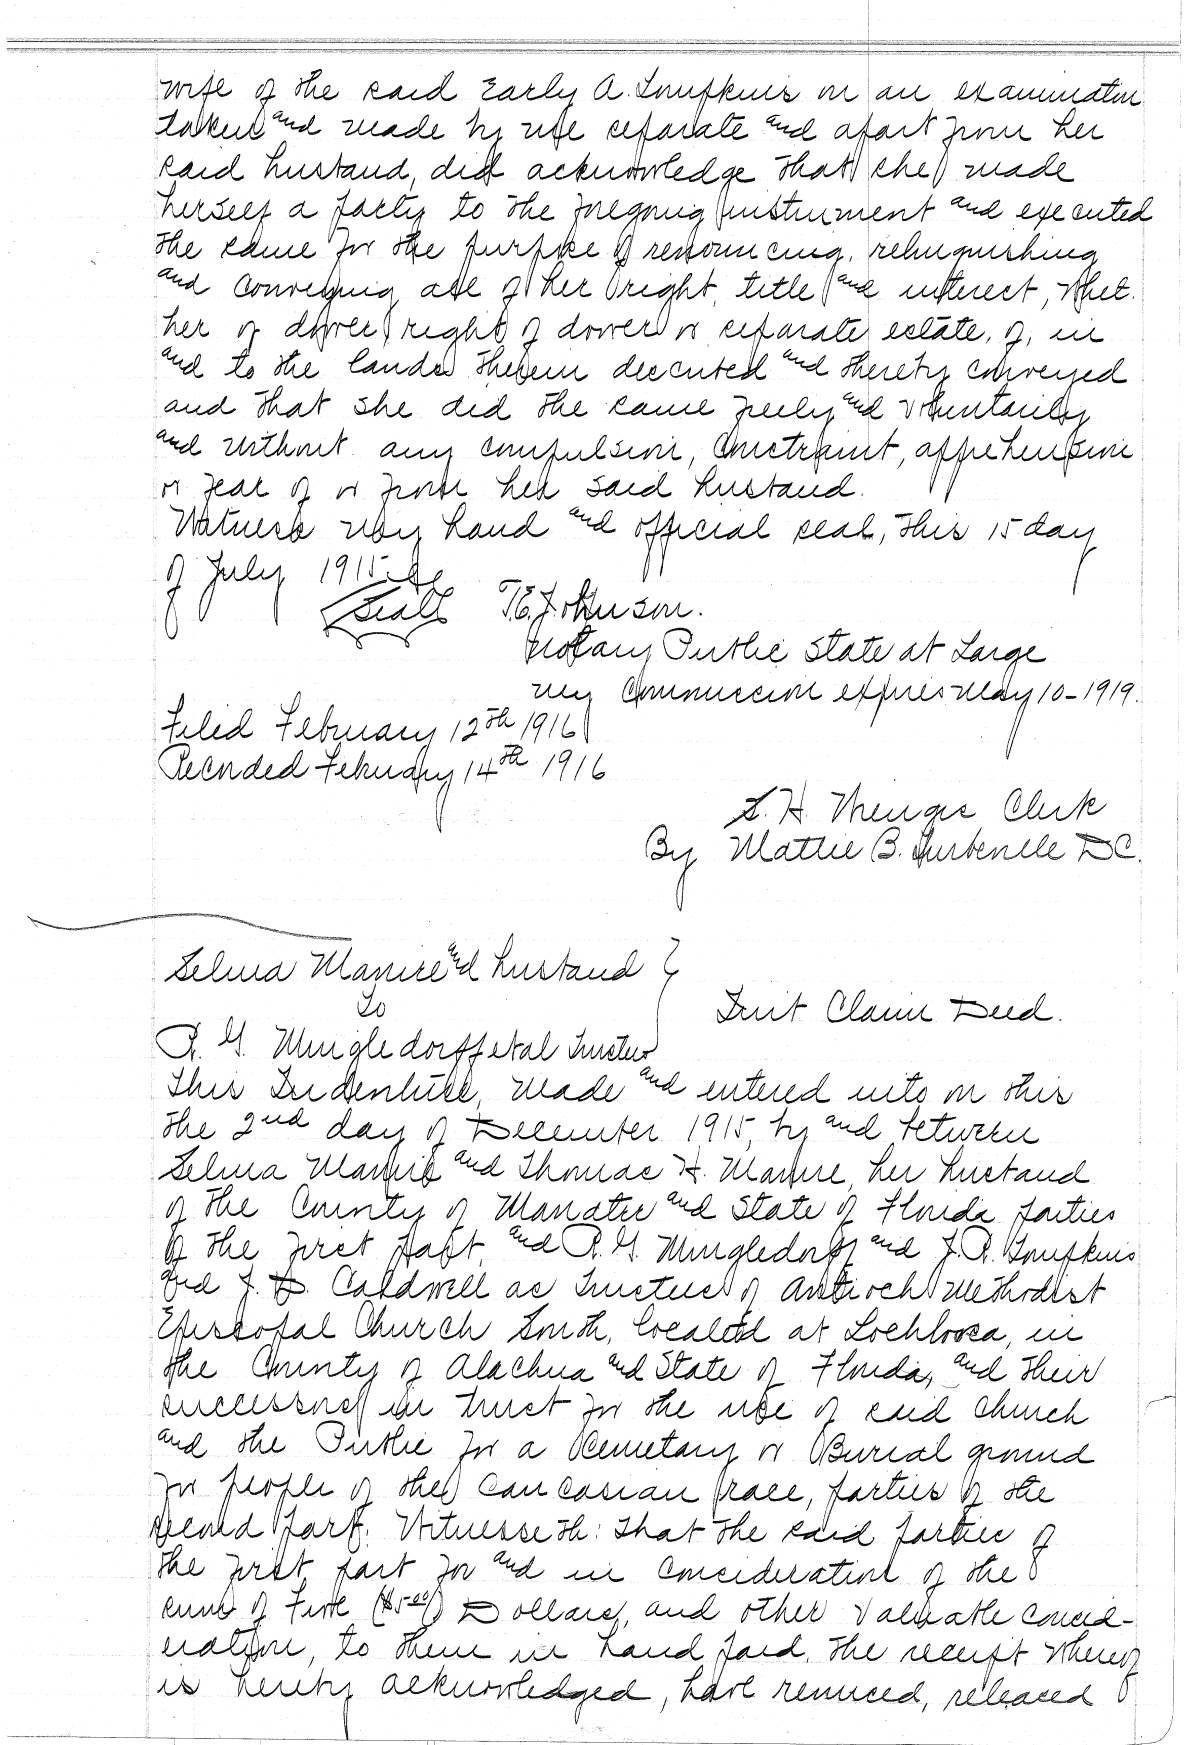 wife of the said Early A. Tompkins on an examination
taken and made by me separate and apart from her
said husband, did acknowledge that she made
herself a party to the foregoing instrument and executed
the same for the purpose of renouncing, relinquishing
and conveying all of her right, title and interest, whet
her of dower, right of dower or separate estate, of, in
and to the lands therein described and thereby conveyed
and that she did the same freely and voluntarily
and without any compulsion, constraint, apprehension
or fear of or from her said husband.
Witness my hand and official seal, this 15 day
of July 1915
Seal T.E. Johnson.
Notary Public State at Large
my Commission expires May 10-1919.
Filed February 12th 1916
Recorded February 14th 1916
S. H. Wienges Clerk
By Mattie B. DC.
Selma Manire and husband
to
Quit Claim Deed.
R. G. Mingledorff etal Trustees
This Indenture, made and entered into on this
the 2nd day of December 1915, by and between
Selma Manire and Thomas H. Manire, her husband
of the County of Manatee and State of Florida parties
of the first part, and R. G. Mingledorff and J. R. Tompkins
and J. D. Caldwell as Trustees of Antioch Methodist
Episcopal Church South, located at Lochloosa, in
the County of Alachua and State of Florida, and their
successors in trust for the use of said church
and the Public for a Cemetary or Burial ground
for people of the Caucasian race, parties of the
second part. Witnesseth: That the said parties of
the first part for and in consideration of the
sum of Five ($5.00) Dollars, and other valuable consid-
eration, to them in hand paid, the receipt whereof
is hereby acknowledged, have remised, released